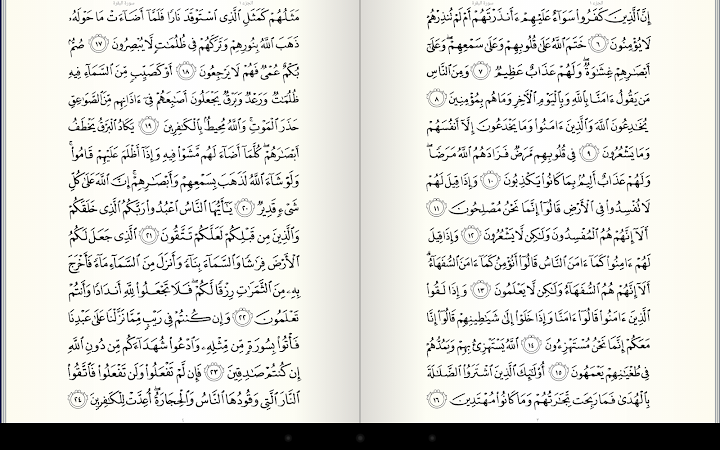 إِنَّ ٱلَّذِينَ كَفَرُوا۟ سَوَآءٌ عَلَيْهِمْ ءَأَنذَرْتَهُمْ أَمْ لَمْ تُنذِرْهُمْ
لَا يُؤْمِنُونَ ٦ خَتَمَ ٱللَّهُ عَلَىٰ قُلُوبِهِمْ وَعَلَىٰ سَمْعِهِمْ ۖ وَعَلَىٰٓ
أَبْصَٰرِهِمْ غِشَٰوَةٌ ۖ وَلَهُمْ عَذَابٌ عَظِيمٌ ٧ وَمِنَ ٱلنَّاسِ
مَن يَقُولُ ءَامَنَّا بِٱللَّهِ وَبِٱلْيَوْمِ ٱلْءَاخِرِ وَمَا هُم بِمُؤْمِنِينَ ٨
يُخَٰدِعُونَ ٱللَّهَ وَٱلَّذِينَ ءَامَنُوا۟ وَمَا يَخْدَعُونَ إِلَّآ أَنفُسَهُمْ
وَمَا يَشْعُرُونَ ٩ فِى قُلُوبِهِم مَّرَضٌ فَزَادَهُمُ ٱللَّهُ مَرَضًا ۖ
وَلَهُمْ عَذَابٌ أَلِيمٌۢ بِمَا كَانُوا۟ يَكْذِبُونَ ١٠ وَإِذَا قِيلَ لَهُمْ
لَا تُفْسِدُوا۟ فِى ٱلْأَرْضِ قَالُوٓا۟ إِنَّمَا نَحْنُ مُصْلِحُونَ ١١
أَلَآ إِنَّهُمْ هُمُ ٱلْمُفْسِدُونَ وَلَٰكِن لَّا يَشْعُرُونَ ١٢ وَإِذَا قِيلَ
لَهُمْ ءَامِنُوا۟ كَمَآ ءَامَنَ ٱلنَّاسُ قَالُوٓا۟ أَنُؤْمِنُ كَمَآ ءَامَنَ ٱلسُّفَهَآءُ ۗ
أَلَآ إِنَّهُمْ هُمُ ٱلسُّفَهَآءُ وَلَٰكِن لَّا يَعْلَمُونَ ١٣ وَإِذَا لَقُوا۟
ٱلَّذِينَ ءَامَنُوا۟ قَالُوٓا۟ ءَامَنَّا وَإِذَا خَلَوْا۟ إِلَىٰ شَيَٰطِينِهِمْ قَالُوٓا۟ إِنَّا
مَعَكُمْ إِنَّمَا نَحْنُ مُسْتَهْزِءُونَ ١٤ ٱللَّهُ يَسْتَهْزِئُ بِهِمْ وَيَمُدُّهُمْ
فِى طُغْيَٰنِهِمْ يَعْمَهُونَ ١٥ أُو۟لَٰٓئِكَ ٱلَّذِينَ ٱشْتَرَوُا۟ ٱلضَّلَٰلَةَ
بِٱلْهُدَىٰ فَمَا رَبِحَت تِّجَٰرَتُهُمْ وَمَا كَانُوا۟ مُهْتَدِينَ ١٦
مَثَلُهُمْ كَمَثَلِ ٱلَّذِى ٱسْتَوْقَدَ نَارًا فَلَمَّآ أَضَآءَتْ مَا حَوْلَهُۥ
ذَهَبَ ٱللَّهُ بِنُورِهِمْ وَتَرَكَهُمْ فِى ظُلُمَٰتٍ لَّا يُبْصِرُونَ ١٧ صُمٌّۢ
بُكْمٌ عُمْىٌ فَهُمْ لَا يَرْجِعُونَ ١٨ أَوْ كَصَيِّبٍ مِّنَ ٱلسَّمَآءِ فِيهِ
ظُلُمَٰتٌ وَرَعْدٌ وَبَرْقٌ يَجْعَلُونَ أَصَٰبِعَهُمْ فِىٓ ءَاذَانِهِم مِّنَ ٱلصَّوَٰعِقِ
حَذَرَ ٱلْمَوْتِ ۚ وَٱللَّهُ مُحِيطٌۢ بِٱلْكَٰفِرِينَ ١٩ يَكَادُ ٱلْبَرْقُ يَخْطَفُ
أَبْصَٰرَهُمْ ۖ كُلَّمَآ أَضَآءَ لَهُم مَّشَوْا۟ فِيهِ وَإِذَآ أَظْلَمَ عَلَيْهِمْ قَامُوا۟ ۚ
وَلَوْ شَآءَ ٱللَّهُ لَذَهَبَ بِسَمْعِهِمْ وَأَبْصَٰرِهِمْ ۚ إِنَّ ٱللَّهَ عَلَىٰ كُلِّ
شَىْءٍ قَدِيرٌ ٢٠ يَٰٓأَيُّهَا ٱلنَّاسُ ٱعْبُدُوا۟ رَبَّكُمُ ٱلَّذِى خَلَقَكُمْ
وَٱلَّذِينَ مِن قَبْلِكُمْ لَعَلَّكُمْ تَتَّقُونَ ٢١ ٱلَّذِى جَعَلَ لَكُمُ
ٱلْأَرْضَ فِرَٰشًا وَٱلسَّمَآءَ بِنَآءً وَأَنزَلَ مِنَ ٱلسَّمَآءِ مَآءً فَأَخْرَجَ
بِهِۦ مِنَ ٱلثَّمَرَٰتِ رِزْقًا لَّكُمْ ۖ فَلَا تَجْعَلُوا۟ لِلَّهِ أَندَادًا وَأَنتُمْ
تَعْلَمُونَ ٢٢ وَإِن كُنتُمْ فِى رَيْبٍ مِّمَّا نَزَّلْنَا عَلَىٰ عَبْدِنَا
فَأْتُوا۟ بِسُورَةٍ مِّن مِّثْلِهِۦ وَٱدْعُوا۟ شُهَدَآءَكُم مِّن دُونِ ٱللَّهِ
إِن كُنتُمْ صَٰدِقِينَ ٢٣ فَإِن لَّمْ تَفْعَلُوا۟ وَلَن تَفْعَلُوا۟ فَٱتَّقُوا۟
ٱلنَّارَ ٱلَّتِى وَقُودُهَا ٱلنَّاسُ وَٱلْحِجَارَةُ ۖ أُعِدَّتْ لِلْكَٰفِرِينَ ٢٤